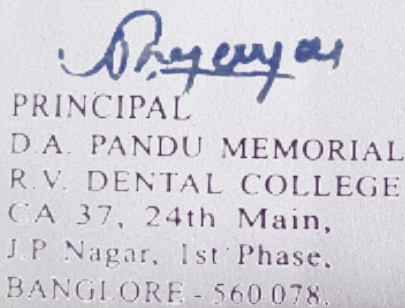 PRINCIPAL
D.A. PANDU MEMORIAL
R.V. DENTAL COLLEGE
CA 37, 24th Main,
J.P. Nagar, 1st Phase,
BANGLORE - 560 078.